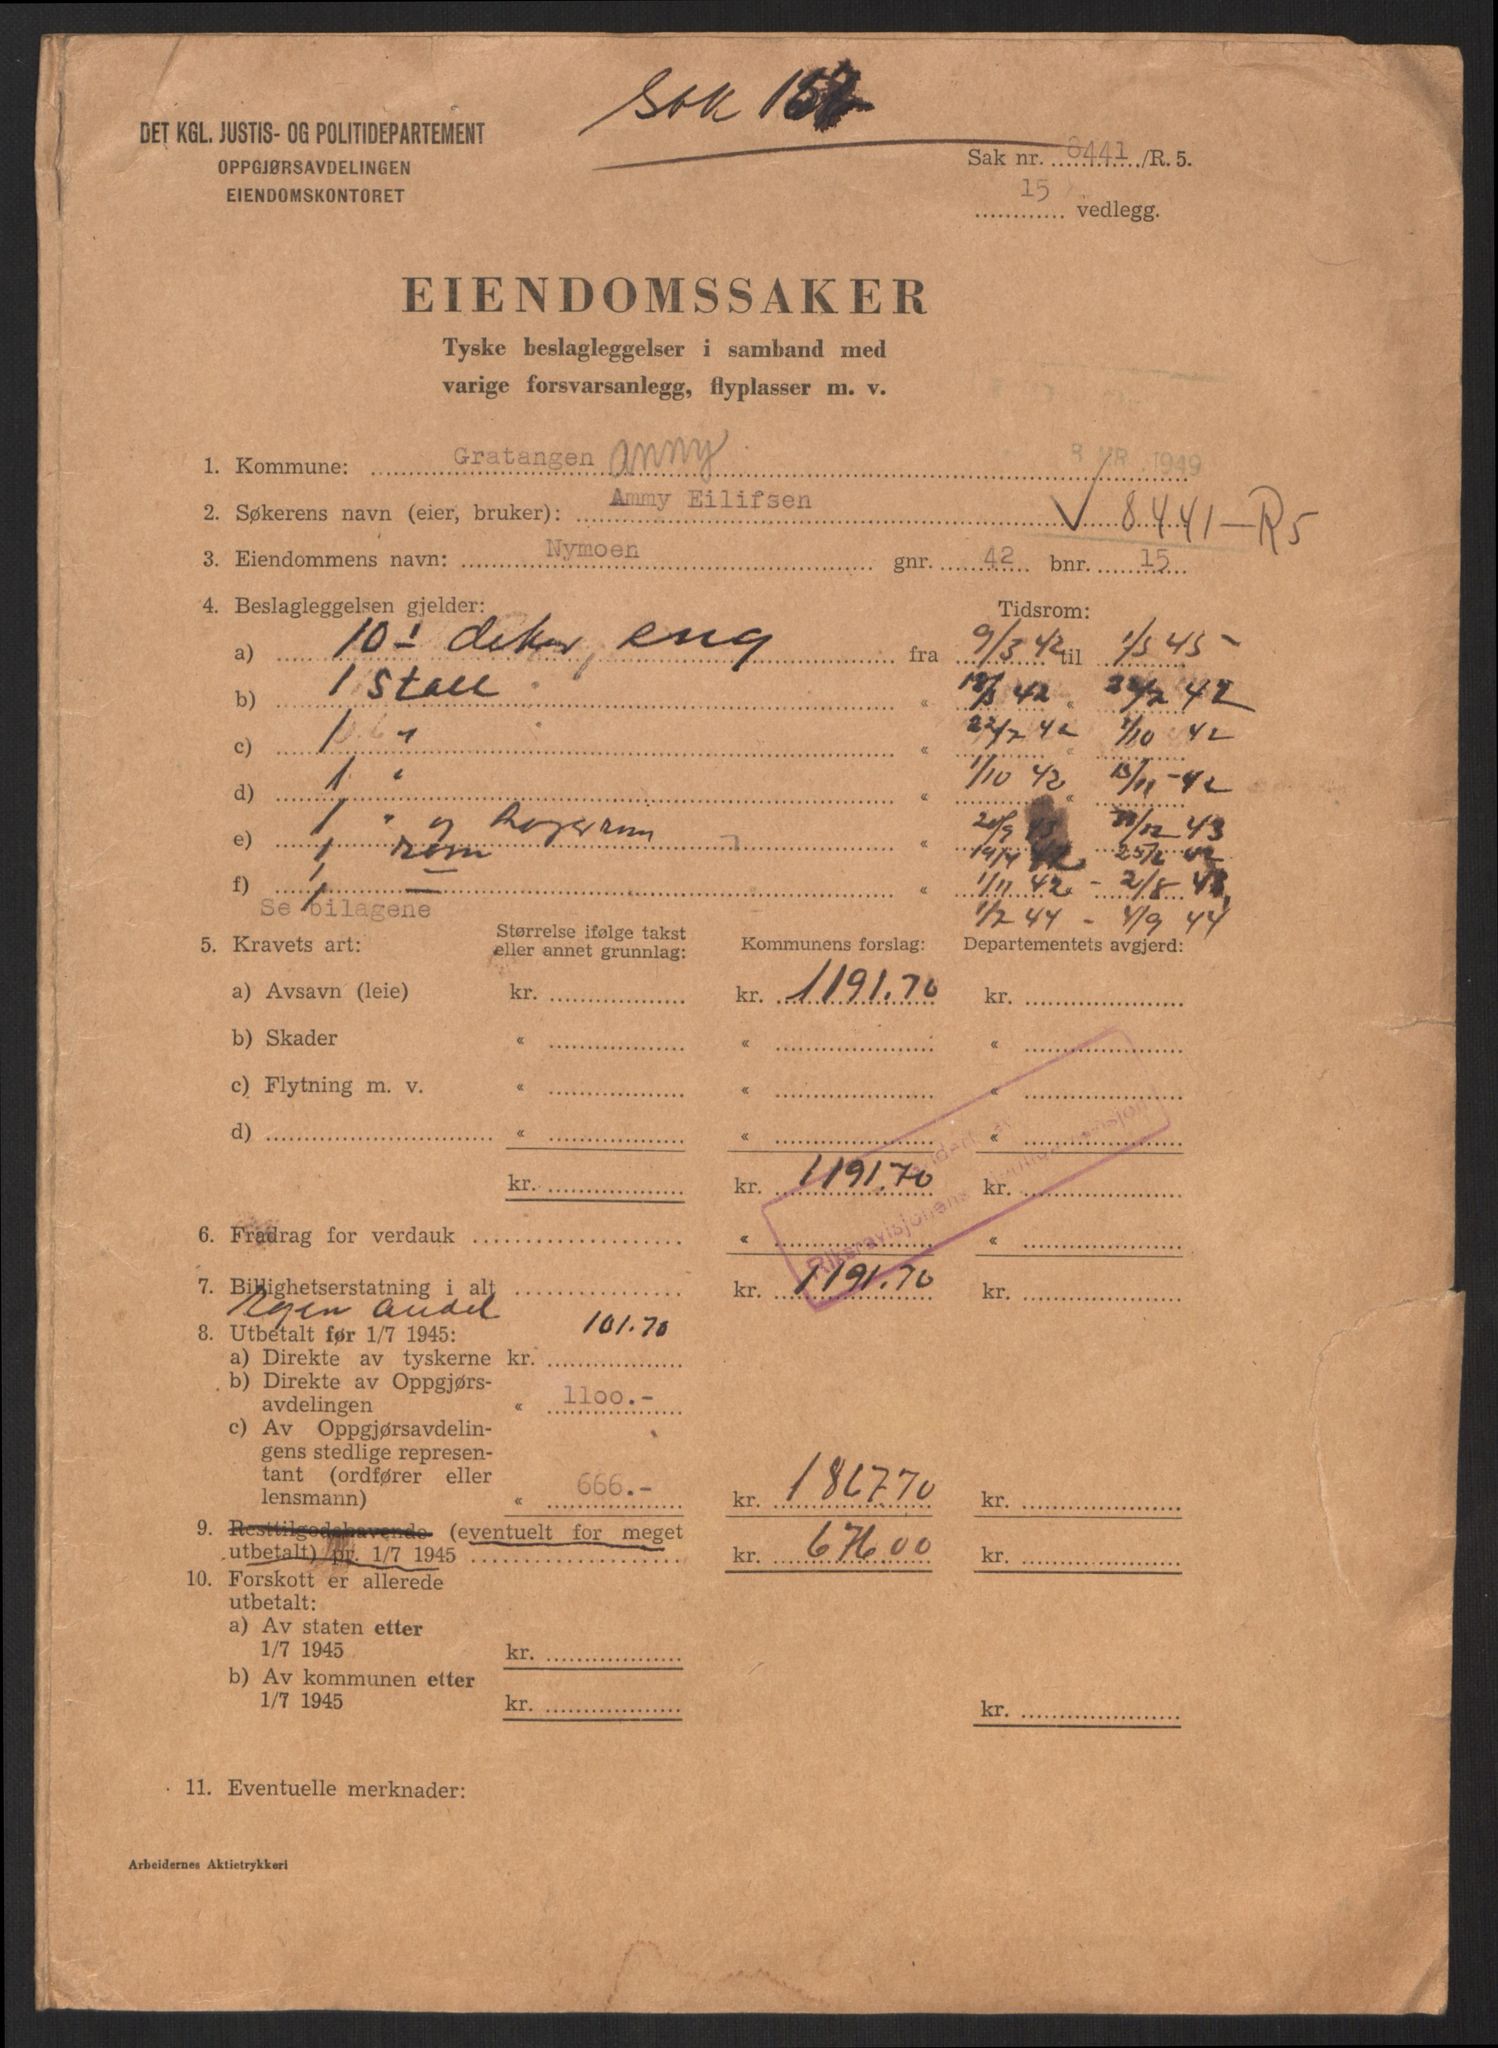 Sak 15
DET KGL. JUSTIS- OG POLITIDEPARTEMENT
OPPGJØRSAVDELINGEN
EIENDOMSKONTORET
Sak nr. 8441/R. 5.
15 vedlegg.
EIENDOMSSAKER
Tyske beslagleggelser i samband med
varige forsvarsanlegg, flyplasser m. v.
1949
1. Kommune: Gratangen Anny
2. Søkerens navn (eier, bruker): Ammy Eilifsen 8441-R5
3. Eiendommens navn: Nymoen gnr. 42 bnr. 15
4. Beslagleggelsen gjelder: Tidsrom:
a) 10 dekar, eng fra 9/3 42 til 1/5 45
b) 1 Stall " 42 22/2 42
c) 1 " " 22/2 42 1/10 42
d) 1 " " 1/10 42 13/11-42
e) 1 " og lagerrom " 20/9 43 12 43
1 rom 19/4 42 25/2 42
f) 1 — " 1/11 42 - 2/8 43
Se bilagene 1/2 44 - 4/9 44
5. Kravets art: Størrelse ifølge takst eller annet grunnlag: Kommunens forslag: Departementets avgjerd:
a) Avsavn (leie) kr. kr. 1191.70 kr.
b) Skader " " "
c) Flytning m. v. " " "
d) " " "
kr. kr. 1191.70 kr.
Riksrevisjonens
6. Fradrag for verdauk " "
7. Billighetserstatning i alt kr. 1191.70 kr.
Egen andel 101.70
8. Utbetalt før 1/7 1945:
a) Direkte av tyskerne kr.
b) Direkte av Oppgjørs-
avdelingen " 1100.-
c) Av Oppgjørsavdelin-
gens stedlige represen-
tant (ordfører eller
lensmann) " 666.- kr. 1867.70 kr.
9. Resttilgodehavende (eventuelt for meget
utbetalt) pr. 1/7 1945 kr. 676.00 kr.
10. Forskott er allerede
utbetalt:
a) Av staten etter
1/7 1945 kr.
b) Av kommunen etter
1/7 1945 kr. kr.
11. Eventuelle merknader:
Arbeidernes Aktietrykkeri